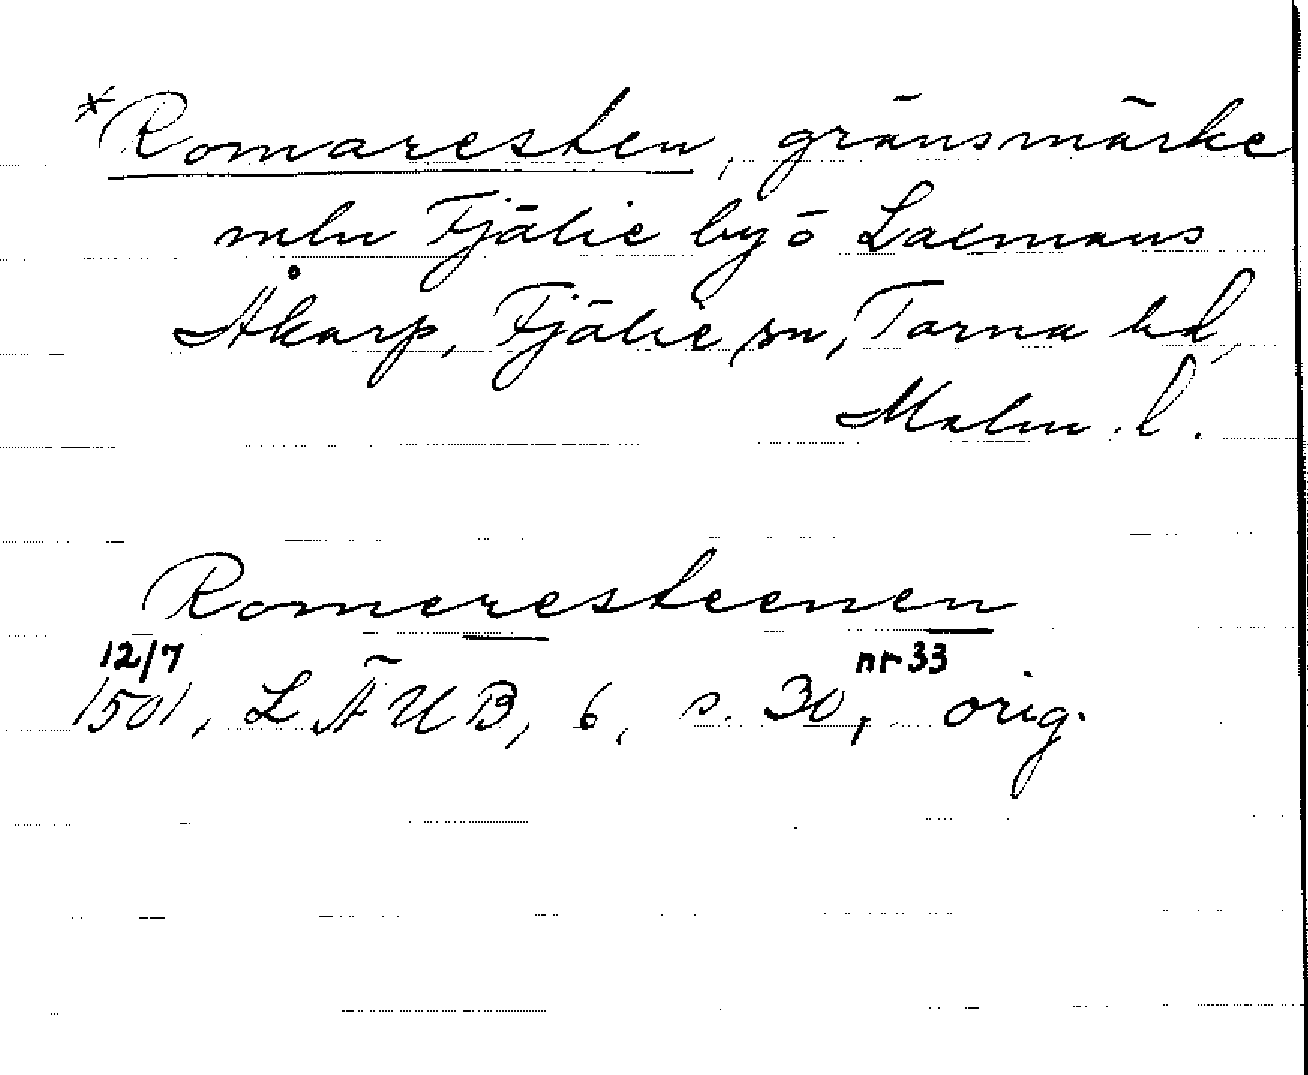 *Romaresten, gränsmärke
mln Fjälie by o Laemans
Åkarp, Fjälie sn, Torna hd,
Malm. l.
Romeresteenen
12/7 nr 33
1501, LÄUB, 6, s. 30, orig.